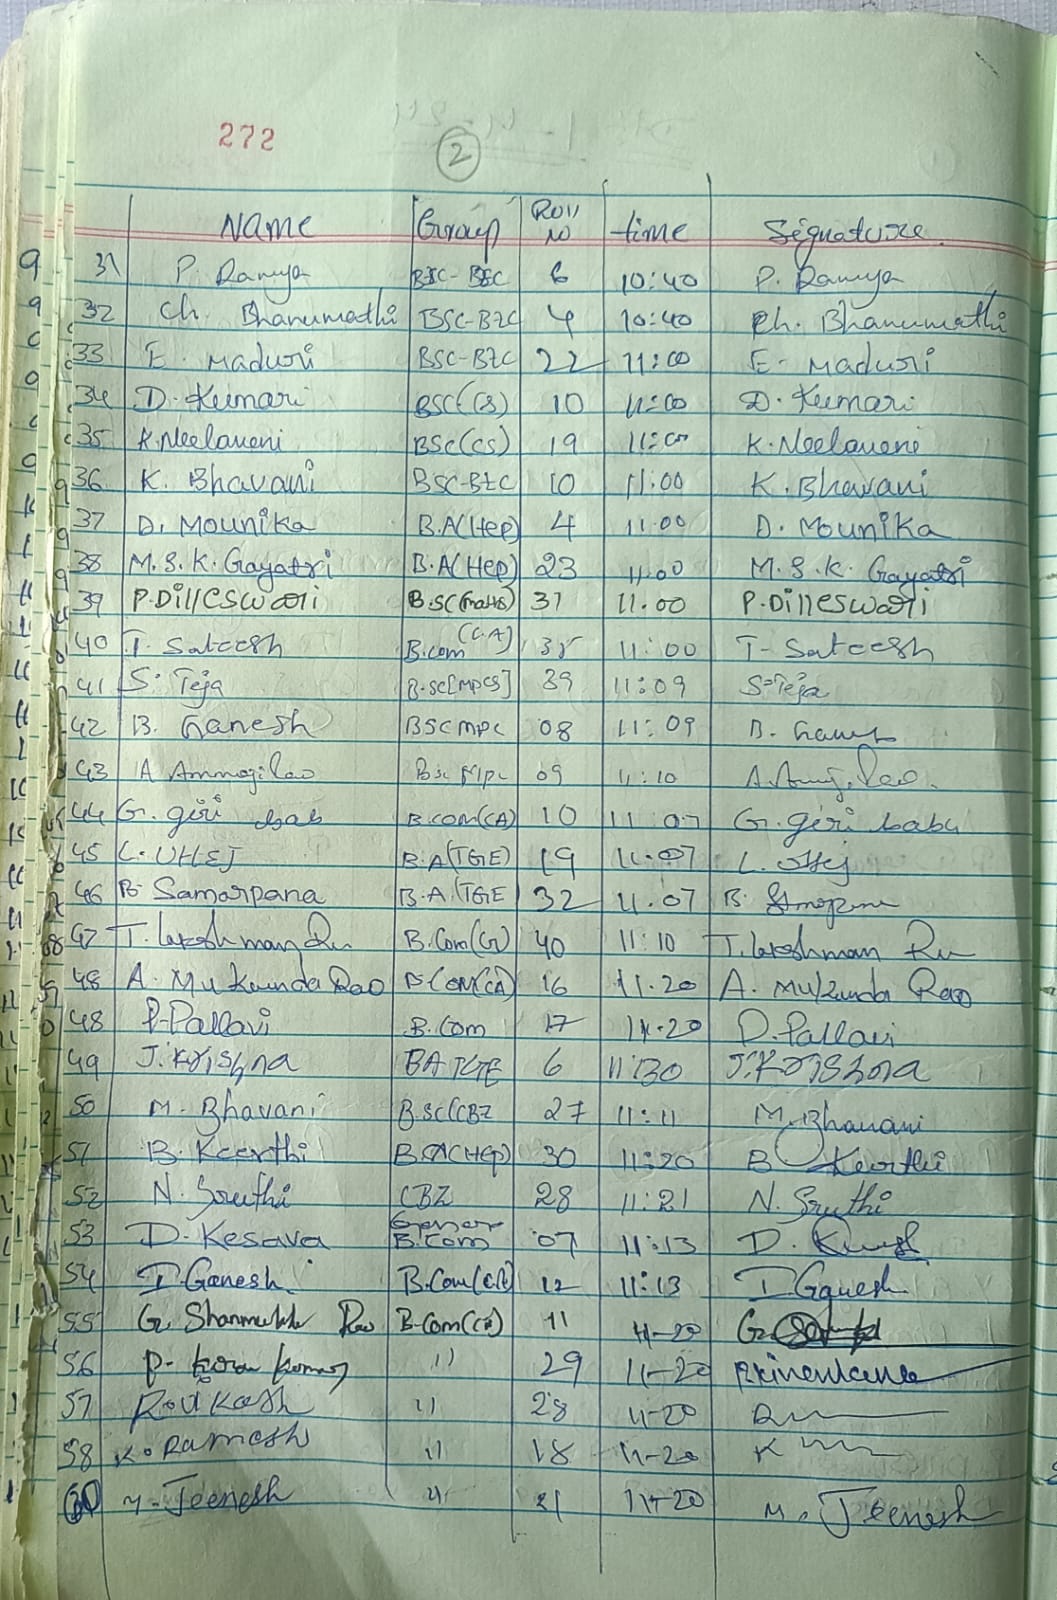 272
2
Name Group Roll No time Signature
31 P. Ramya BSC-BSC 6 10:40 P. Ramya
32 Ch. Bhanumathi BSC-BZC 4 10:40 Ch. Bhanumathi
33 E. Maduri BSC-BZC 22 11:00 E. Maduri
34 D. Kumari BSC(CS) 10 11:00 D. Kumari
35 K. Neelaveni BSC(CS) 19 11:00 K. Neelaveni
36 K. Bhavani BSC-BZC 10 11:00 K. Bhavani
37 D. Mounika B.A(Hep) 4 11.00 D. Mounika
38 M.S.K. Gayatri B.A(Hep) 23 11.00 M.S.K. Gayatri
39 P. Dilleswari B.SC(maths) 31 11.00 P. Dilleswari
40 T. Sateesh B.com (C.A) 11:00 T. Sateesh
41 S. Teja B.SC[MPCS] 39 11:09 S. Teja
42 B. Ganesh BSC MPC 08 11:09 B.
43 A Ammoji Rao BSC MPC 09 11:10
44 G. giri bab B.COM(CA) 10 11 07 G. giri babu
45 B.A(TGE) 19 11.07
46 B. Samarpana B.A(TGE 32 11.07 B.
47 T. Lakshman Ru B.Com(G) 40 11:10 T. Lakshman Ru
48 A. Mukunda Rao B.COM(CA) 16 11.20 A. Mukunda Rao
48 P. Pallavi B.Com 17 11-20 P. Pallavi
49 J. Krishna BA TGE 6 11:30 J. Krishna
50 M. Bhavani B.SC(CBZ 27 11:11 M. Bhavani
51 B. Keerthi B.A(Hep) 30 11:20 B Keerthi
52 N. Sruthi CBZ 28 11:21 N. Sruthi
53 D. Kesava B.Com 07 11:13 D.
54 I. Ganesh B.Com(CA) 12 11:13 I Ganesh
55 G. Shanmukh Rao B.Com(CA) 11 11-20 G.
56 P. 11 29 11-20
57 11 28 11-20
58 K. Ramesh 11 18 11-20 K
60 Jeenesh 11 21 11-20 M. Jeenesh